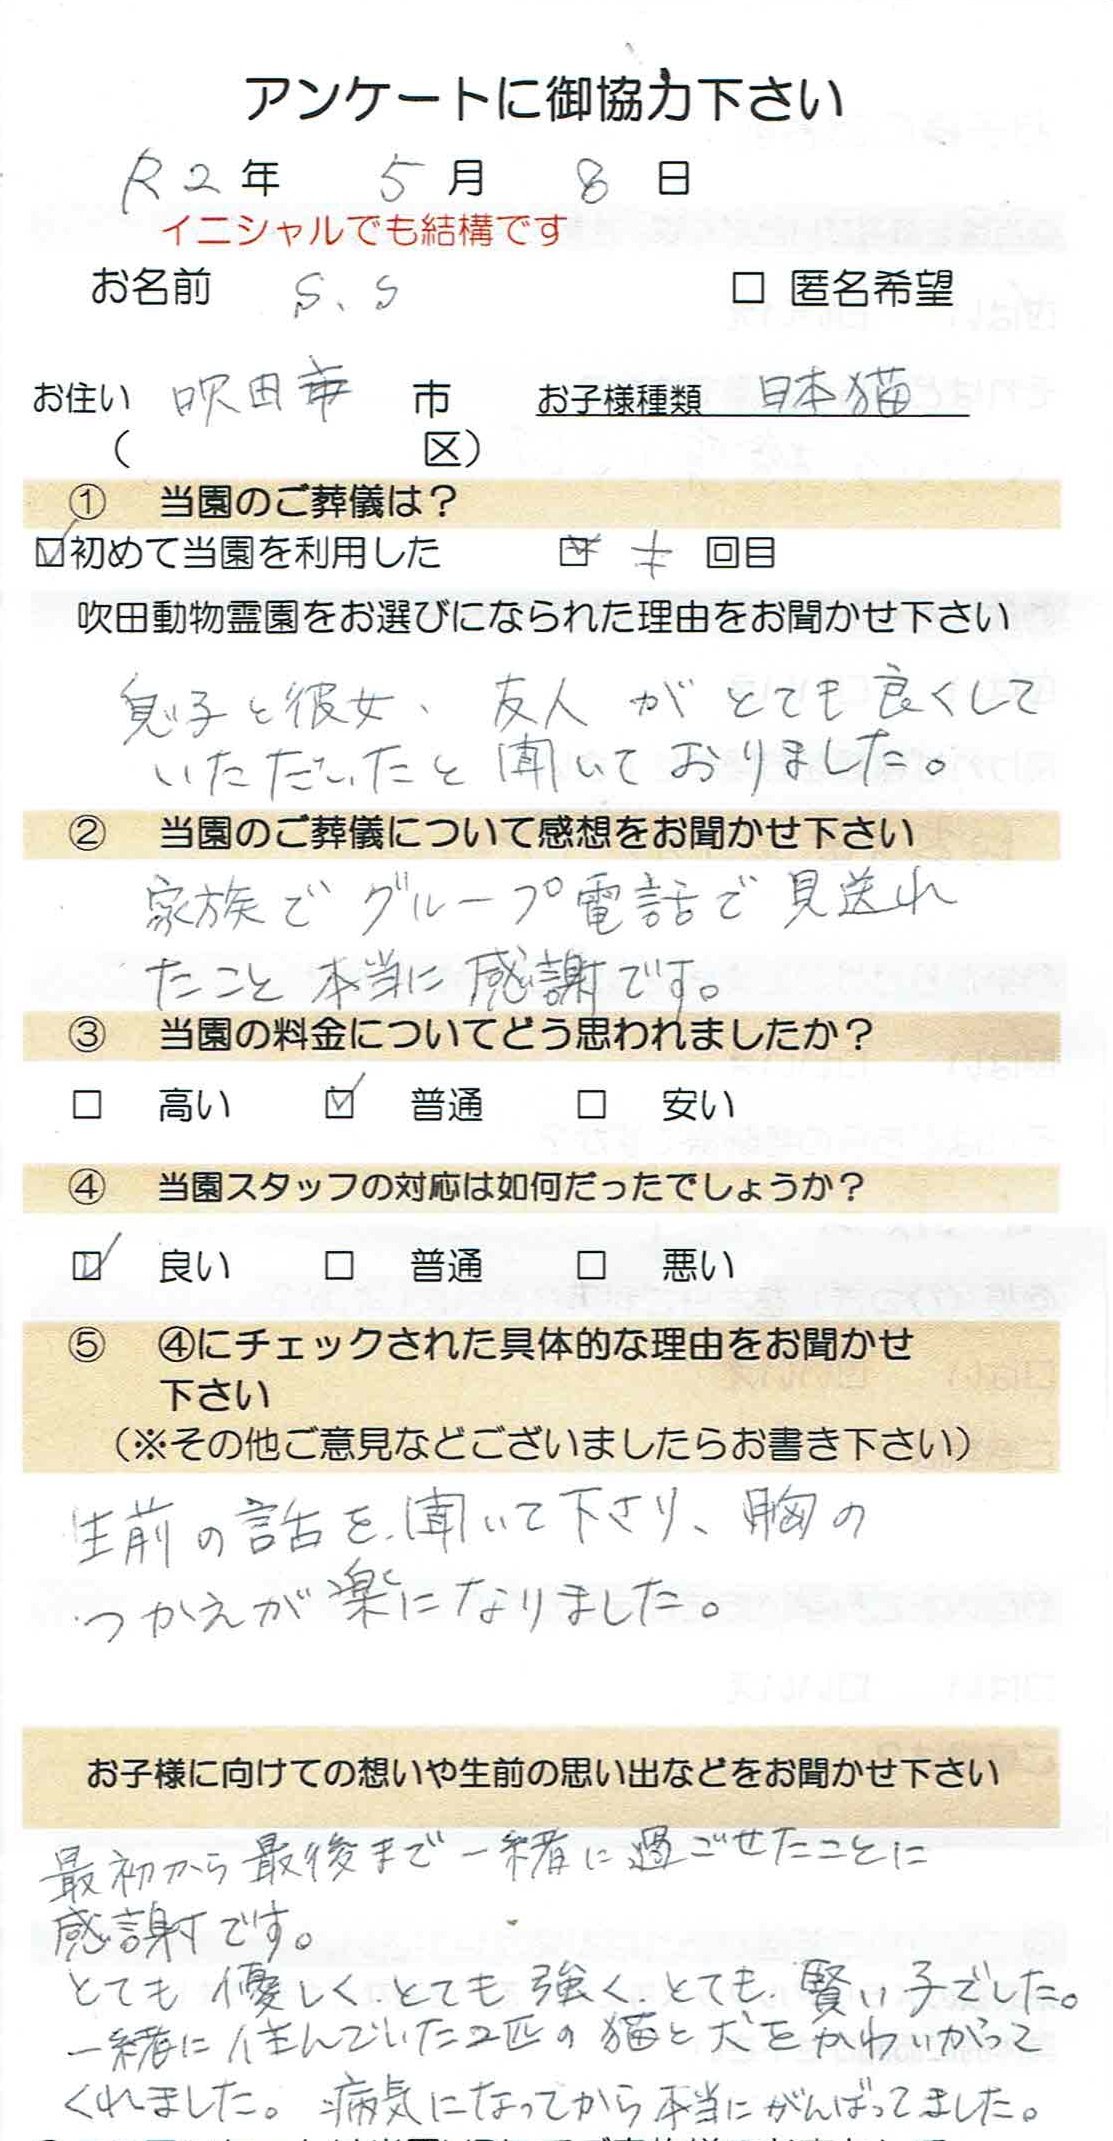 アンケートに御協力下さい
R2年 5月 8日
イニシャルでも結構です
お名前 S、S □ 匿名希望
お住い 吹田 市 お子様種類 日本猫
( 区)
① 当園のご葬儀は？
☑初めて当園を利用した □ 回目
吹田動物霊園をお選びになられた理由をお聞かせ下さい
息子と彼女、友人がとても良くして
いただいたと聞いておりました。
② 当園のご葬儀について感想をお聞かせ下さい
家族でグループ電話で見送れ
たこと本当に感謝です。
③ 当園の料金についてどう思われましたか？
□ 高い ☑ 普通 □ 安い
④ 当園スタッフの対応は如何だったでしょうか？
☑ 良い □ 普通 □ 悪い
⑤ ④にチェックされた具体的な理由をお聞かせ
下さい
（※その他ご意見などございましたらお書き下さい）
生前の話を聞いて下さり、胸の
つかえが楽になりました。
お子様に向けての想いや生前の思い出などをお聞かせ下さい
最初から最後まで一緒に過ごせたことに
感謝です。
とても優しくとても強くとても賢い子でした。
一緒に住んでいた2匹の猫と犬をかわいがって
くれました。病気になってから本当にがんばってました。